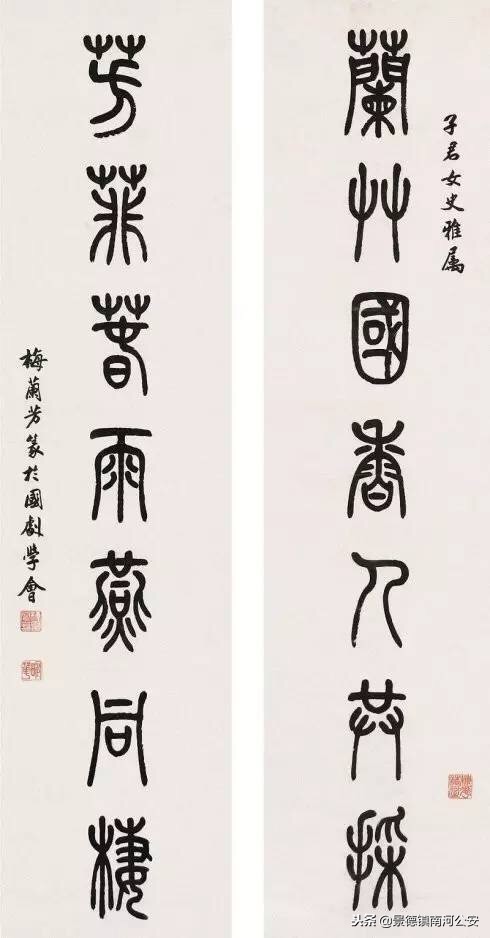 子君女史雅属
蘭艸國香人共採
芳菲春雨燕同棲
梅蘭芳篆於國劇學會
头条 @景德镇南河公安